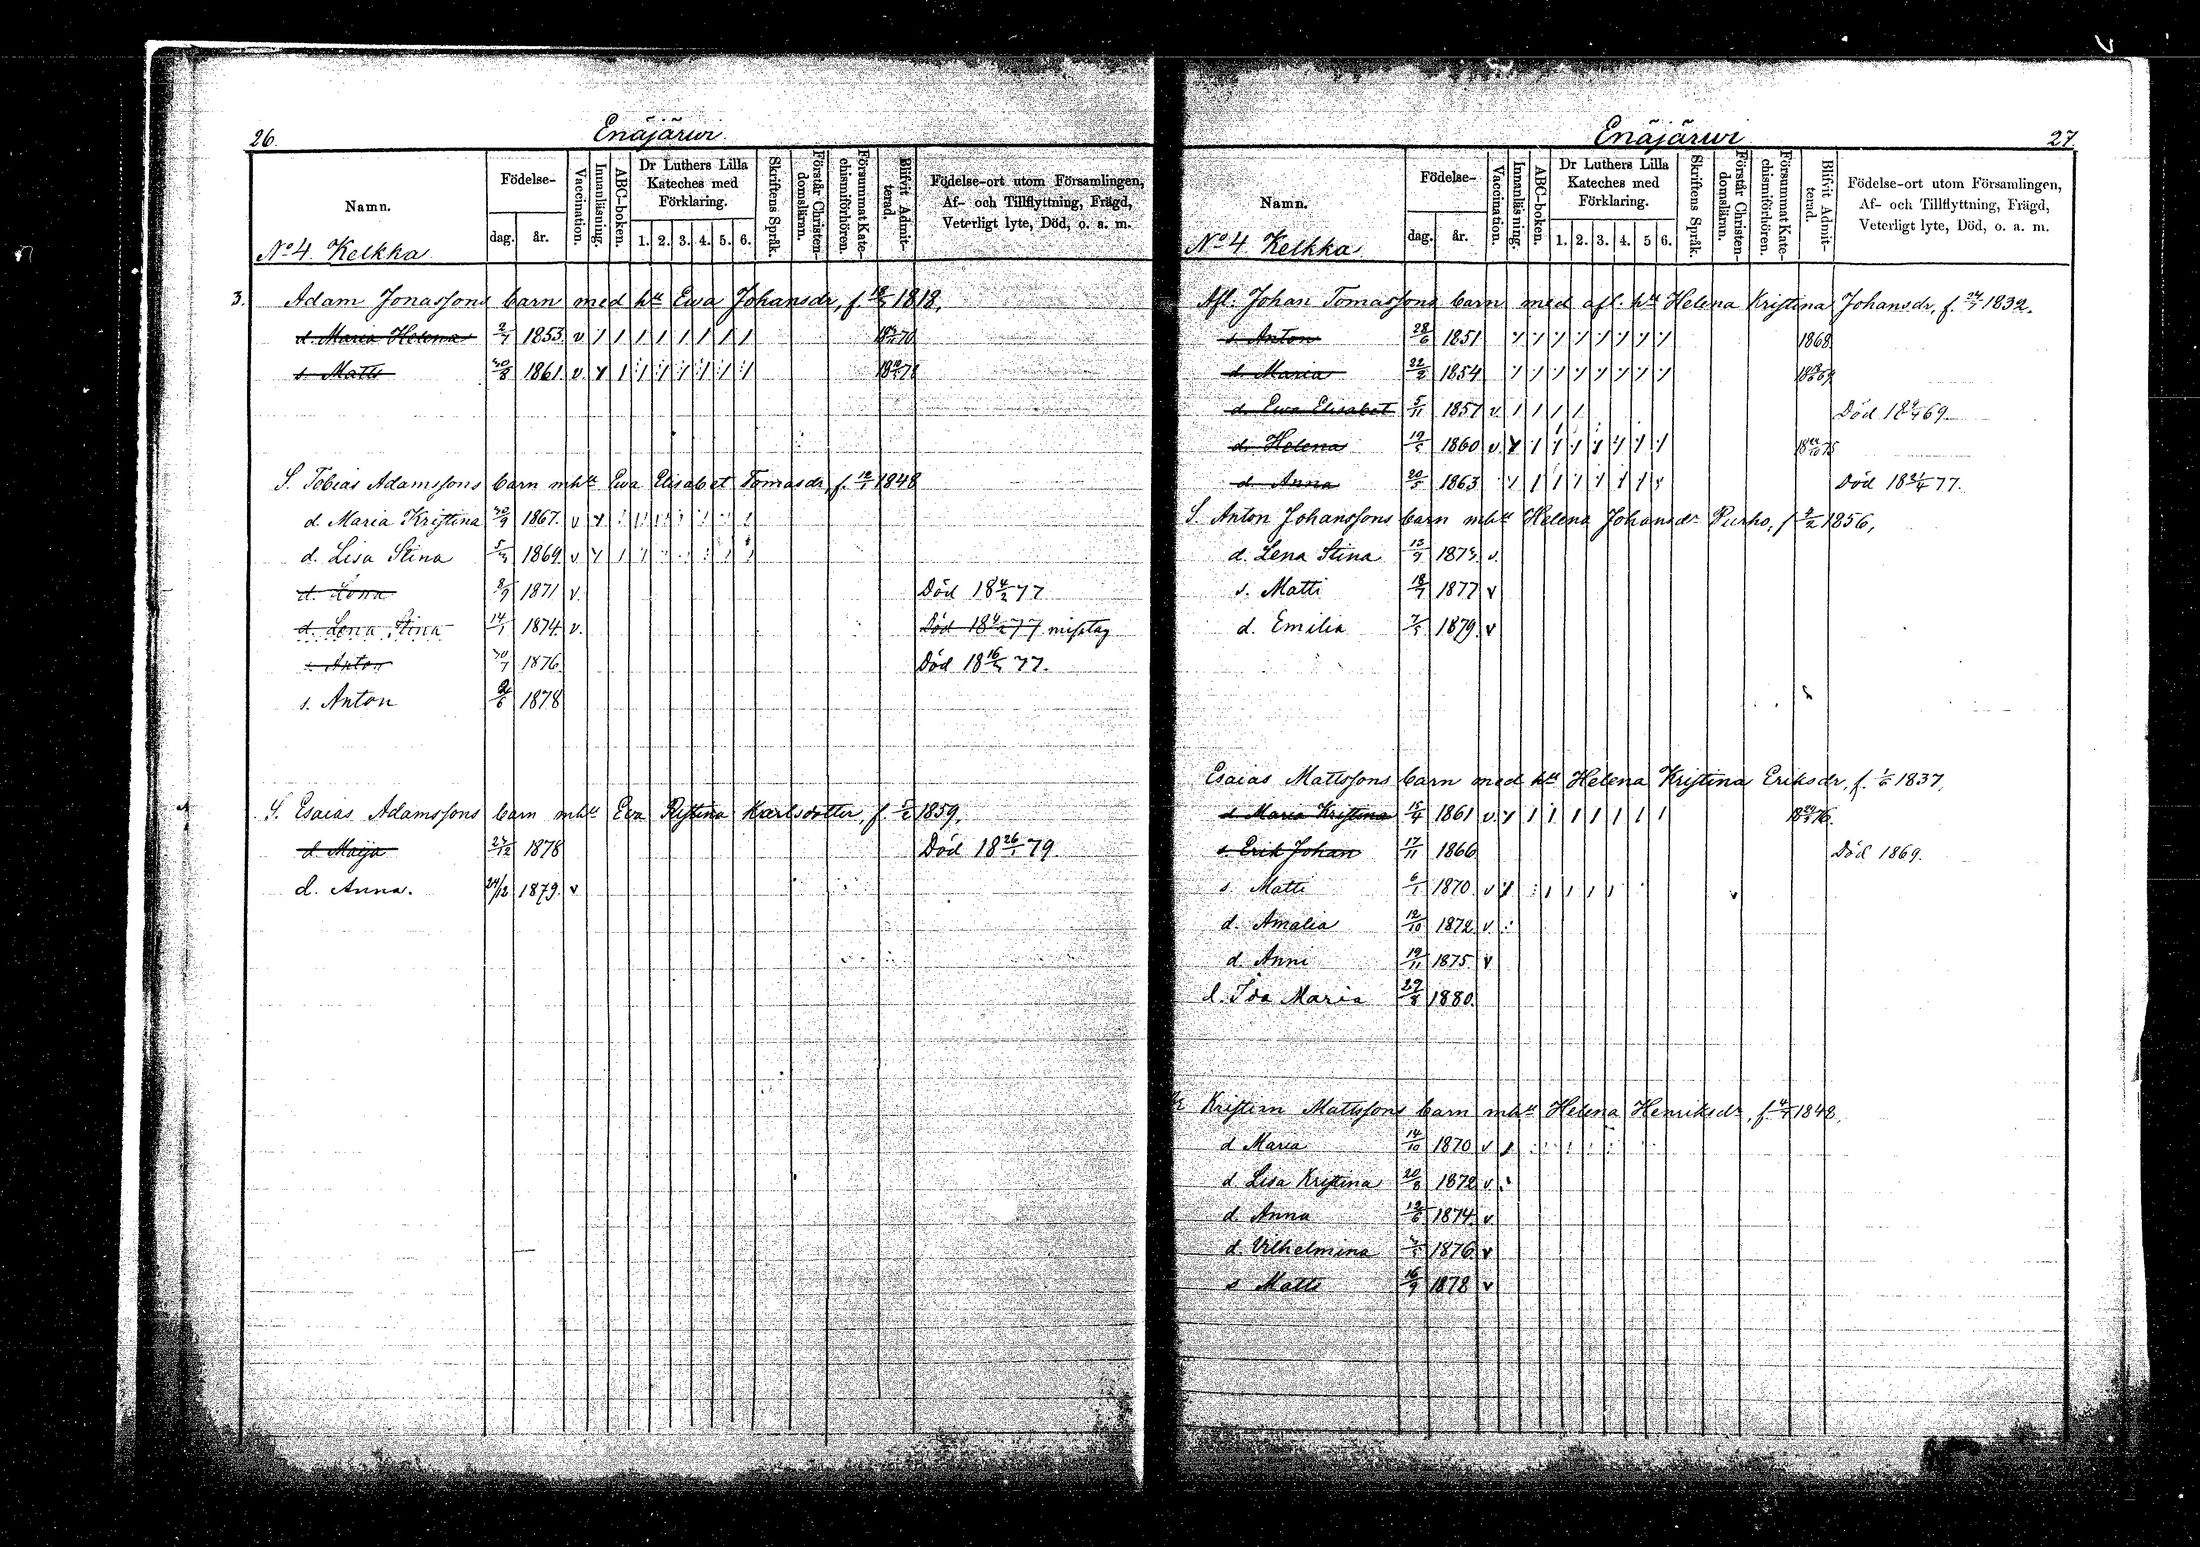 26.
Enäjärwi
Namn.
Födelse-
dag.
år.
Vaccination.
Innanläsning.
ABC-boken.
Dr Luthers Lilla
Kateches med
Förklaring.
1. 2. 3. 4. 5. 6.
Skriftens Språk.
Förstår Christen-
domsläran.
Försummat Kate-
chismiförhören.
Blifvit Admit-
terad.
Födelse-ort utom Församlingen,
Af- och Tillflyttning, Frägd,
Veterligt lyte, Död, o. a. m.
No 4. Kelkka
3. Adam Jonassons barn med hu Ewa Johansdr, f. 1818,
d. Maria Helena 1853. v
s. Matts 30/8 1861. v.
S. Tobias Adamssons barn mhu Ewa Elisabet Tomasdr, f. 1848
d. Maria Kristina 30/9 1867. v
d. Lisa Stina 1869. v
d. Lena 8/9 1871 v. Död 18 4/2 77
d. Lena Stina 14/1 1874. v. Död 18 4/2 77 misstag
s. Anton 30/7 1876 Död 77.
s. Anton 1878
S. Esaias Adamssons barn mhu Eva Ristina Karlsdotter, f. 1859,
d. Maija 27/12 1878 Död 18 26/1 79.
d. Anna. 24/12 1879. v
Enäjärwi
27.
Namn.
Födelse-
dag.
år.
Vaccination.
Innanläsning.
ABC-boken.
Dr Luthers Lilla
Kateches med
Förklaring.
1. 2. 3. 4. 5 6.
Skriftens Språk.
Förstår Christen-
domsläran.
Försummat Kate-
chismiförhören.
Blifvit Admit-
terad.
Födelse-ort utom Församlingen,
Af- och Tillflyttning, Frägd,
Veterligt lyte, Död, o. a. m.
No 4. Kelkka
Afl. Johan Tomassons barn med afl. hu Helena Kristina Johansdr, f. 1832.
s. Anton 28/6 1851 1868
d. Maria 22/2 1854
d. Ewa Elisabet 5/11 1857 v. Död 69.
d. Helena 19/5 1860 v.
d. Anna 20/5 1863 Död 77.
S. Anton Johanssons barn mhu Helena Johansdr Purho, f. 1856,
d. Lena Stina v.
s. Matti 18/7 1877 v
d. Emilia 7/5 1879. v
Esaias Mattssons barn med hu Helena Kristina Eriksdr, f. 1/6 1837,
d. Maria Kristina 15/4 1861 v.
s. Erik Johan 17/11 1866 Död 1869.
s. Matti 6/1 1870. v
d. Amalia 12/10 1872 v
d. Anni 19/11 1875. v
d. Ida Maria 29/8 1880.
Kristian Mattssons barn mhu Helena Henriksdr, f. 1848.
d Maria 14/10 1870 v
d Lisa Kristina 20/8 1872 v.
d. Anna 12/6 1874. v.
d Vilhelmina 1876. v
s Matts 16/9 1878 v